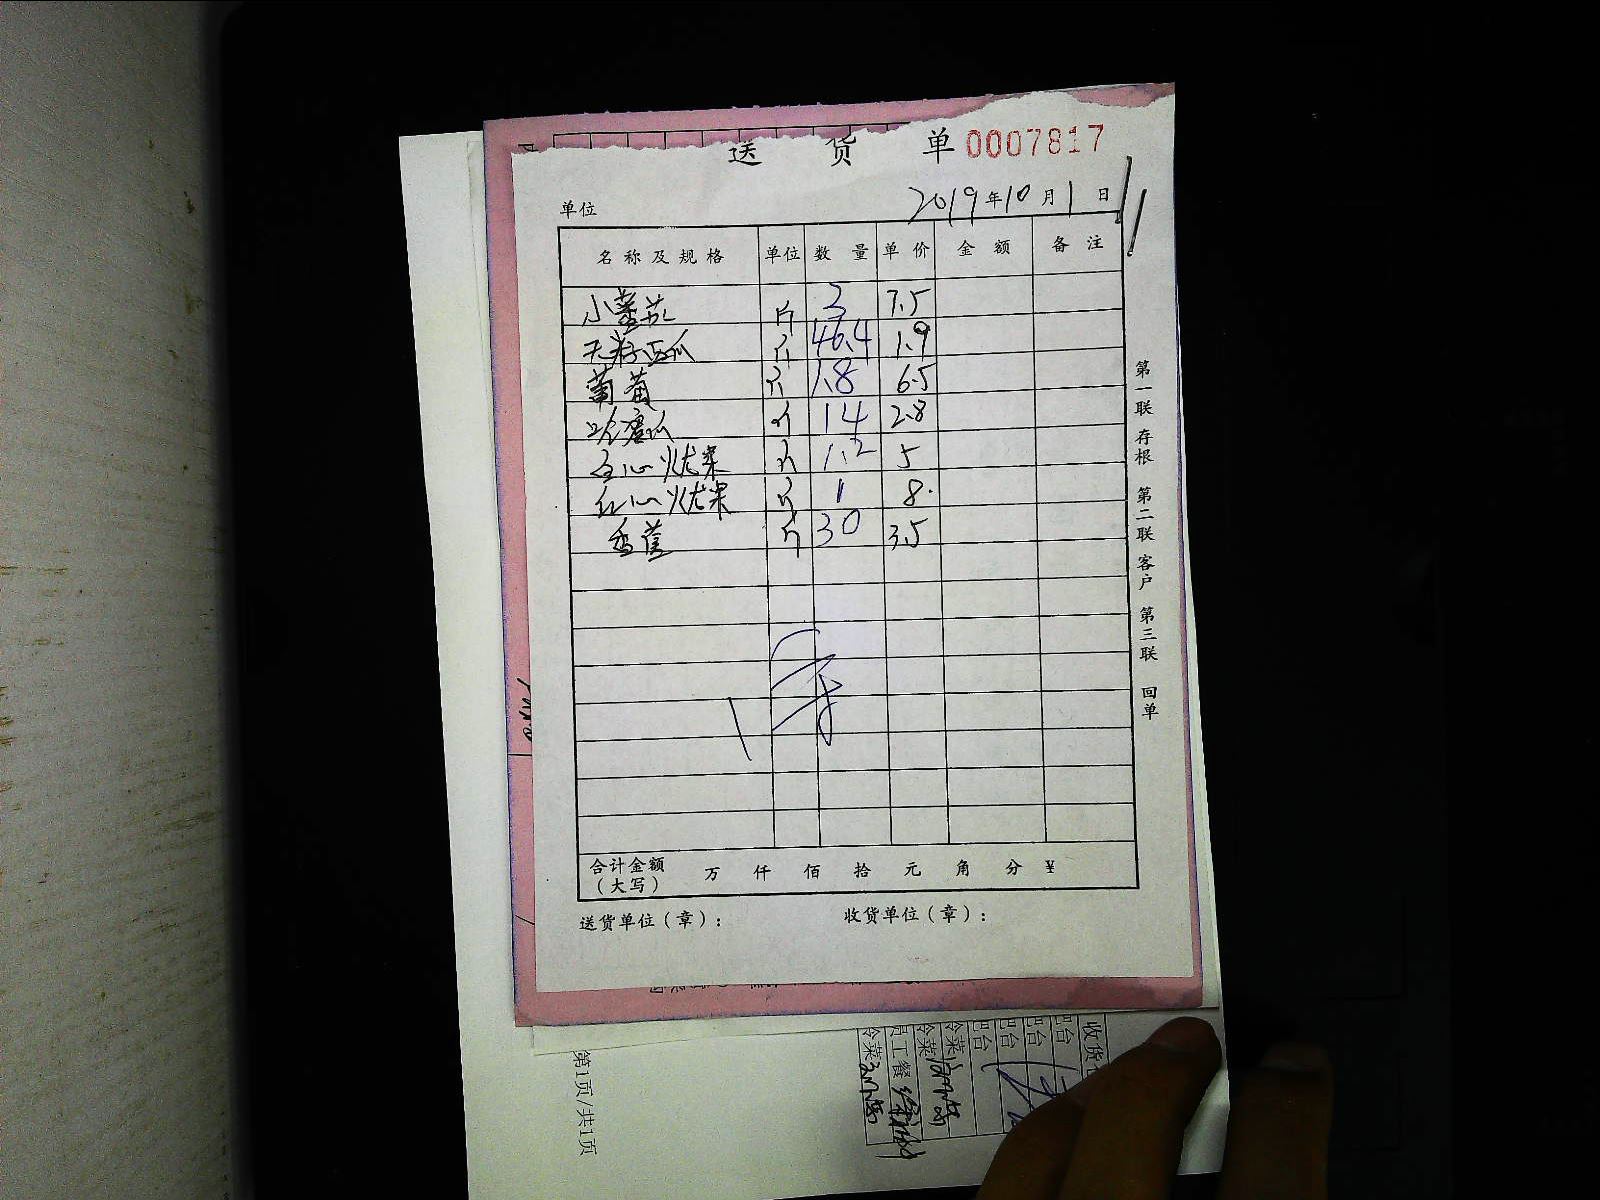 送 货 单 0007817
单位 2019年10月1日
名称及规格 单位 数量 单价 金额 备注
小蕃茄 斤 3 7.5
无籽西瓜 斤 46.4 1.9
葡萄 斤 1.8 6.5
哈蜜瓜 斤 14 2.8
白心火龙果 斤 1.2 5
红心火龙果 斤 1 8.
香蕉 斤 30 3.5
合计金额（大写） 万 仟 佰 拾 元 角 分 ¥
送货单位（章）： 收货单位（章）：
第一联 存根 第二联 客户 第三联 回单
收货
吧台
吧台
吧台
吧台
冷菜
冷菜
员工餐
冷菜
第1页/共1页